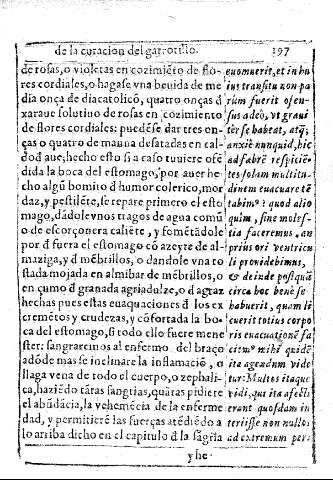 de la curacion del garrotillo. 197
de rosas, o violetas en cozimiẽto de flo-
res cordiales, o hagase vna beuida de me
dia onça de diacatolicõ, quatro onças đ
xaraue solutiuo de rosas en cozimiento
de flores cordiales: puedẽse dar tres on-
ças o quatro de manna desatadas en cal-
do đ aue; hecho esto si a caso tuuiere ofẽ
dida la boca del estomago, por auer he
cho algũ bomito đ humor colerico, mor
daz, y pestilẽte, se repare primero el esto
mago, dãdole vnos tragos de agua comũ
o de escorçonera caliẽte, y fomẽtãdole
por đ fuera el estomago cõ azeyte de al-
maziga, y đ mẽbrillos, o dandole vna to
stada mojada en almibar de mẽbrillos, o
en çumo đ granada agriadulze, o đ agraz
hechas pues estas euaquaciones đ los ex
cremẽtos y crudezas, y cõfortada la bo-
ca del estomago, si todo ello fuere mene
ster: sangraremos al enfermo del braço
adõde mas se inclinare la inflamaciõ, o
llaga vena de todo el cuerpo, o zephali-
ca, haziẽdo tãtas sangtias, quãtas pidiere
el abũdãcia, la vehemẽcia de la enferme
dad, y permitierẽ las fuerças atẽdiẽdo a
lo arriba dicho en el capitulo đ la sãgria
y he
euomuerit, et in hu
ius transitu non pa
rũm fuerit ofen-
sus adeò, vt graui
tẽr se habeat, atq;
anxiè nunquid, hic
ad fabrẽ respiciẽ-
tes solam multitu-
dinem euacuare tẽ
tabim⁹? quod alio
quim, sine moles-
tia faceremus. an
prius ori ventricu
li prouidebimus,
& deinde postquã
circa hoc benè se
habuerit, quam li
cuerit totius corpo
ris euacuationẽ fa
ciem⁹ mihi quidẽ
ita agendum vide
tur: Multos itaque
vidi, qui ita afecti
erant quosdam in
teriisse non nullos
ad extremum per-